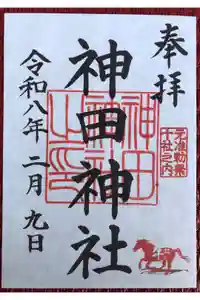 奉拝
元准勅祭
十社之内
神田神社
令和八年二月九日